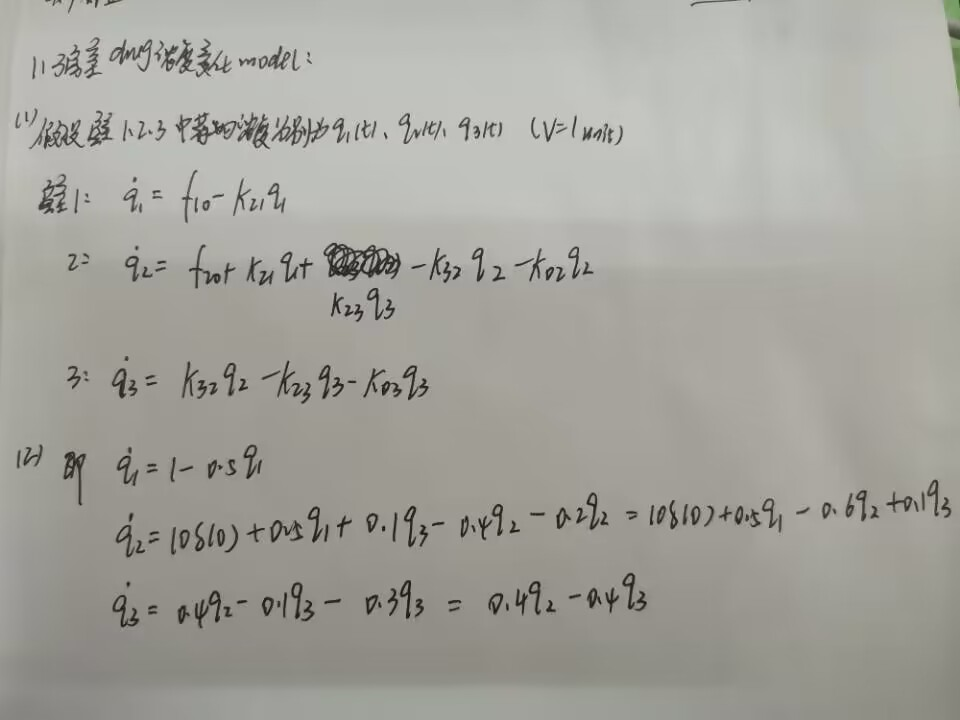 11 3房室 drug浓度变化 model:
(1) 假设室1.2.3中药的浓度分别为q₁(t)、q₂(t)、q₃(t) (V=1 unit)
室1: q̇₁ = f₁₀ - k₂₁q₁
2: q̇₂ = f₂₀ + k₂₁q₁ + k₂₃q₃ - k₃₂q₂ - k₀₂q₂
3: q̇₃ = k₃₂q₂ - k₂₃q₃ - k₀₃q₃
(2) 即 q̇₁ = 1 - 0.5q₁
q̇₂ = 10δ(0) + 0.5q₁ + 0.1q₃ - 0.4q₂ - 0.2q₂ = 10δ(0) + 0.5q₁ - 0.6q₂ + 0.1q₃
q̇₃ = 0.4q₂ - 0.1q₃ - 0.3q₃ = 0.4q₂ - 0.4q₃